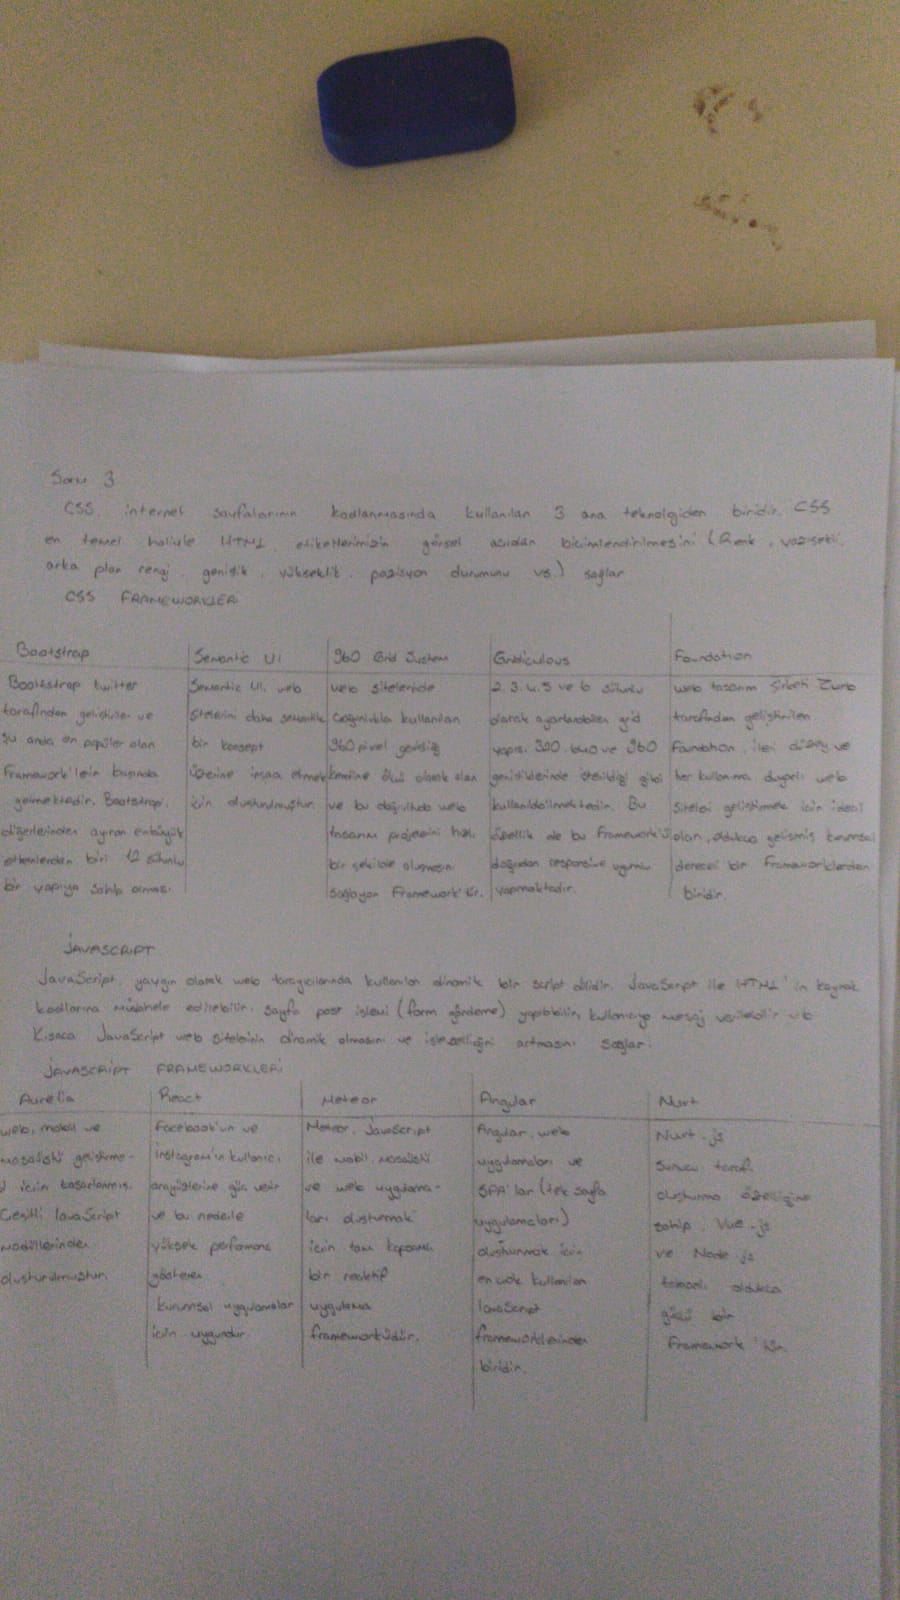 Soru 3
CSS, internet sayfalarının kodlanmasında kullanılan 3 ana teknolojiden biridir. CSS
en temel haliyle HTML etiketlerimizin görsel açıdan biçimlendirilmesini (Renk, yazısekli,
arka plan rengi, genişlik, yükseklik, pozisyon durumunu vs.) sağlar
CSS FRAMEWORKLERİ
Bootstrap
Bootstrap twitter
tarafından geliştirilen ve
şu anda en popüler olan
Framework'lerin başında
gelmektedir. Bootstrap'i
diğerlerinden ayıran en büyük
etkenlerden biri 12 sütunlu
bir yapıya sahip olması.
Semantic UI
Semantic UI, web
sitelerini daha semantik
bir konsept
üzerine inşaa etmek
için oluşturulmuştur.
960 Grid System
web sitelerinde
çoğunlukla kullanılan
960 pixel genişliği
kendine ölçü olarak alan
ve bu doğrultuda web
tasarım projesini hızlı
bir şekilde oluşmasını
sağlayan Framework'tür.
Gridiculous
2, 3, 4, 5 ve 6 sütunlu
olarak ayarlanabilen grid
yapısı 320, 640 ve 960
genişliklerinde istenildiği gibi
kullanılabilmektedir. Bu
özellik de bu Framework'ü
doğrudan responsive uyumlu
yapmaktadır.
Foundation
web tasarım şirketi Zurb
tarafından geliştirilen
Foundation, ileri düzey ve
her kullanıma duyarlı web
siteleri geliştirmek için ideal
olan, oldukça gelişmiş kurumsal
dereceli bir Frameworklerden
biridir.
JAVASCRİPT
JavaScript, yaygın olarak web tarayıcılarında kullanılan dinamik bir script dilidir. JavaScript ile HTML'in kaynak
kodlarına müdahele edilebilir, sayfa post işlemi (form gönderme) yapılabilir, kullanıcıya mesaj verilebilir vb
Kısaca JavaScript web sitelerinin dinamik olmasını ve işlevselliğini artmasını sağlar.
JAVASCRİPT FRAMEWORKLERİ
Aurelia
web, mobil ve
masaüstü geliştirme-
si için tasarlanmış.
Çeşitli JavaScript
modüllerinden
oluşturulmuştur.
React
Facebook'un ve
Instagram'ın kullanıcı
arayüzlerine güç verir
ve bu nedenle
yüksek performans
gösteren
kurumsal uygulamalar
için uygundur.
Meteor
Meteor, JavaScript
ile mobil, masaüstü
ve web uygulama-
ları oluşturmak
için tam kapsamlı
bir reaktif
uygulama
frameworküdür.
Angular
Angular, web
uygulamaları ve
SPA'lar (tek sayfa
uygulamaları)
oluşturmak için
en çok kullanılan
JavaScript
frameworklerinden
biridir.
Nuxt
Nuxt.js
sunucu tarafı
oluşturma özelliğine
sahip, Vue.js
ve Node.js
temelli oldukça
güçlü bir
Framework'tür.